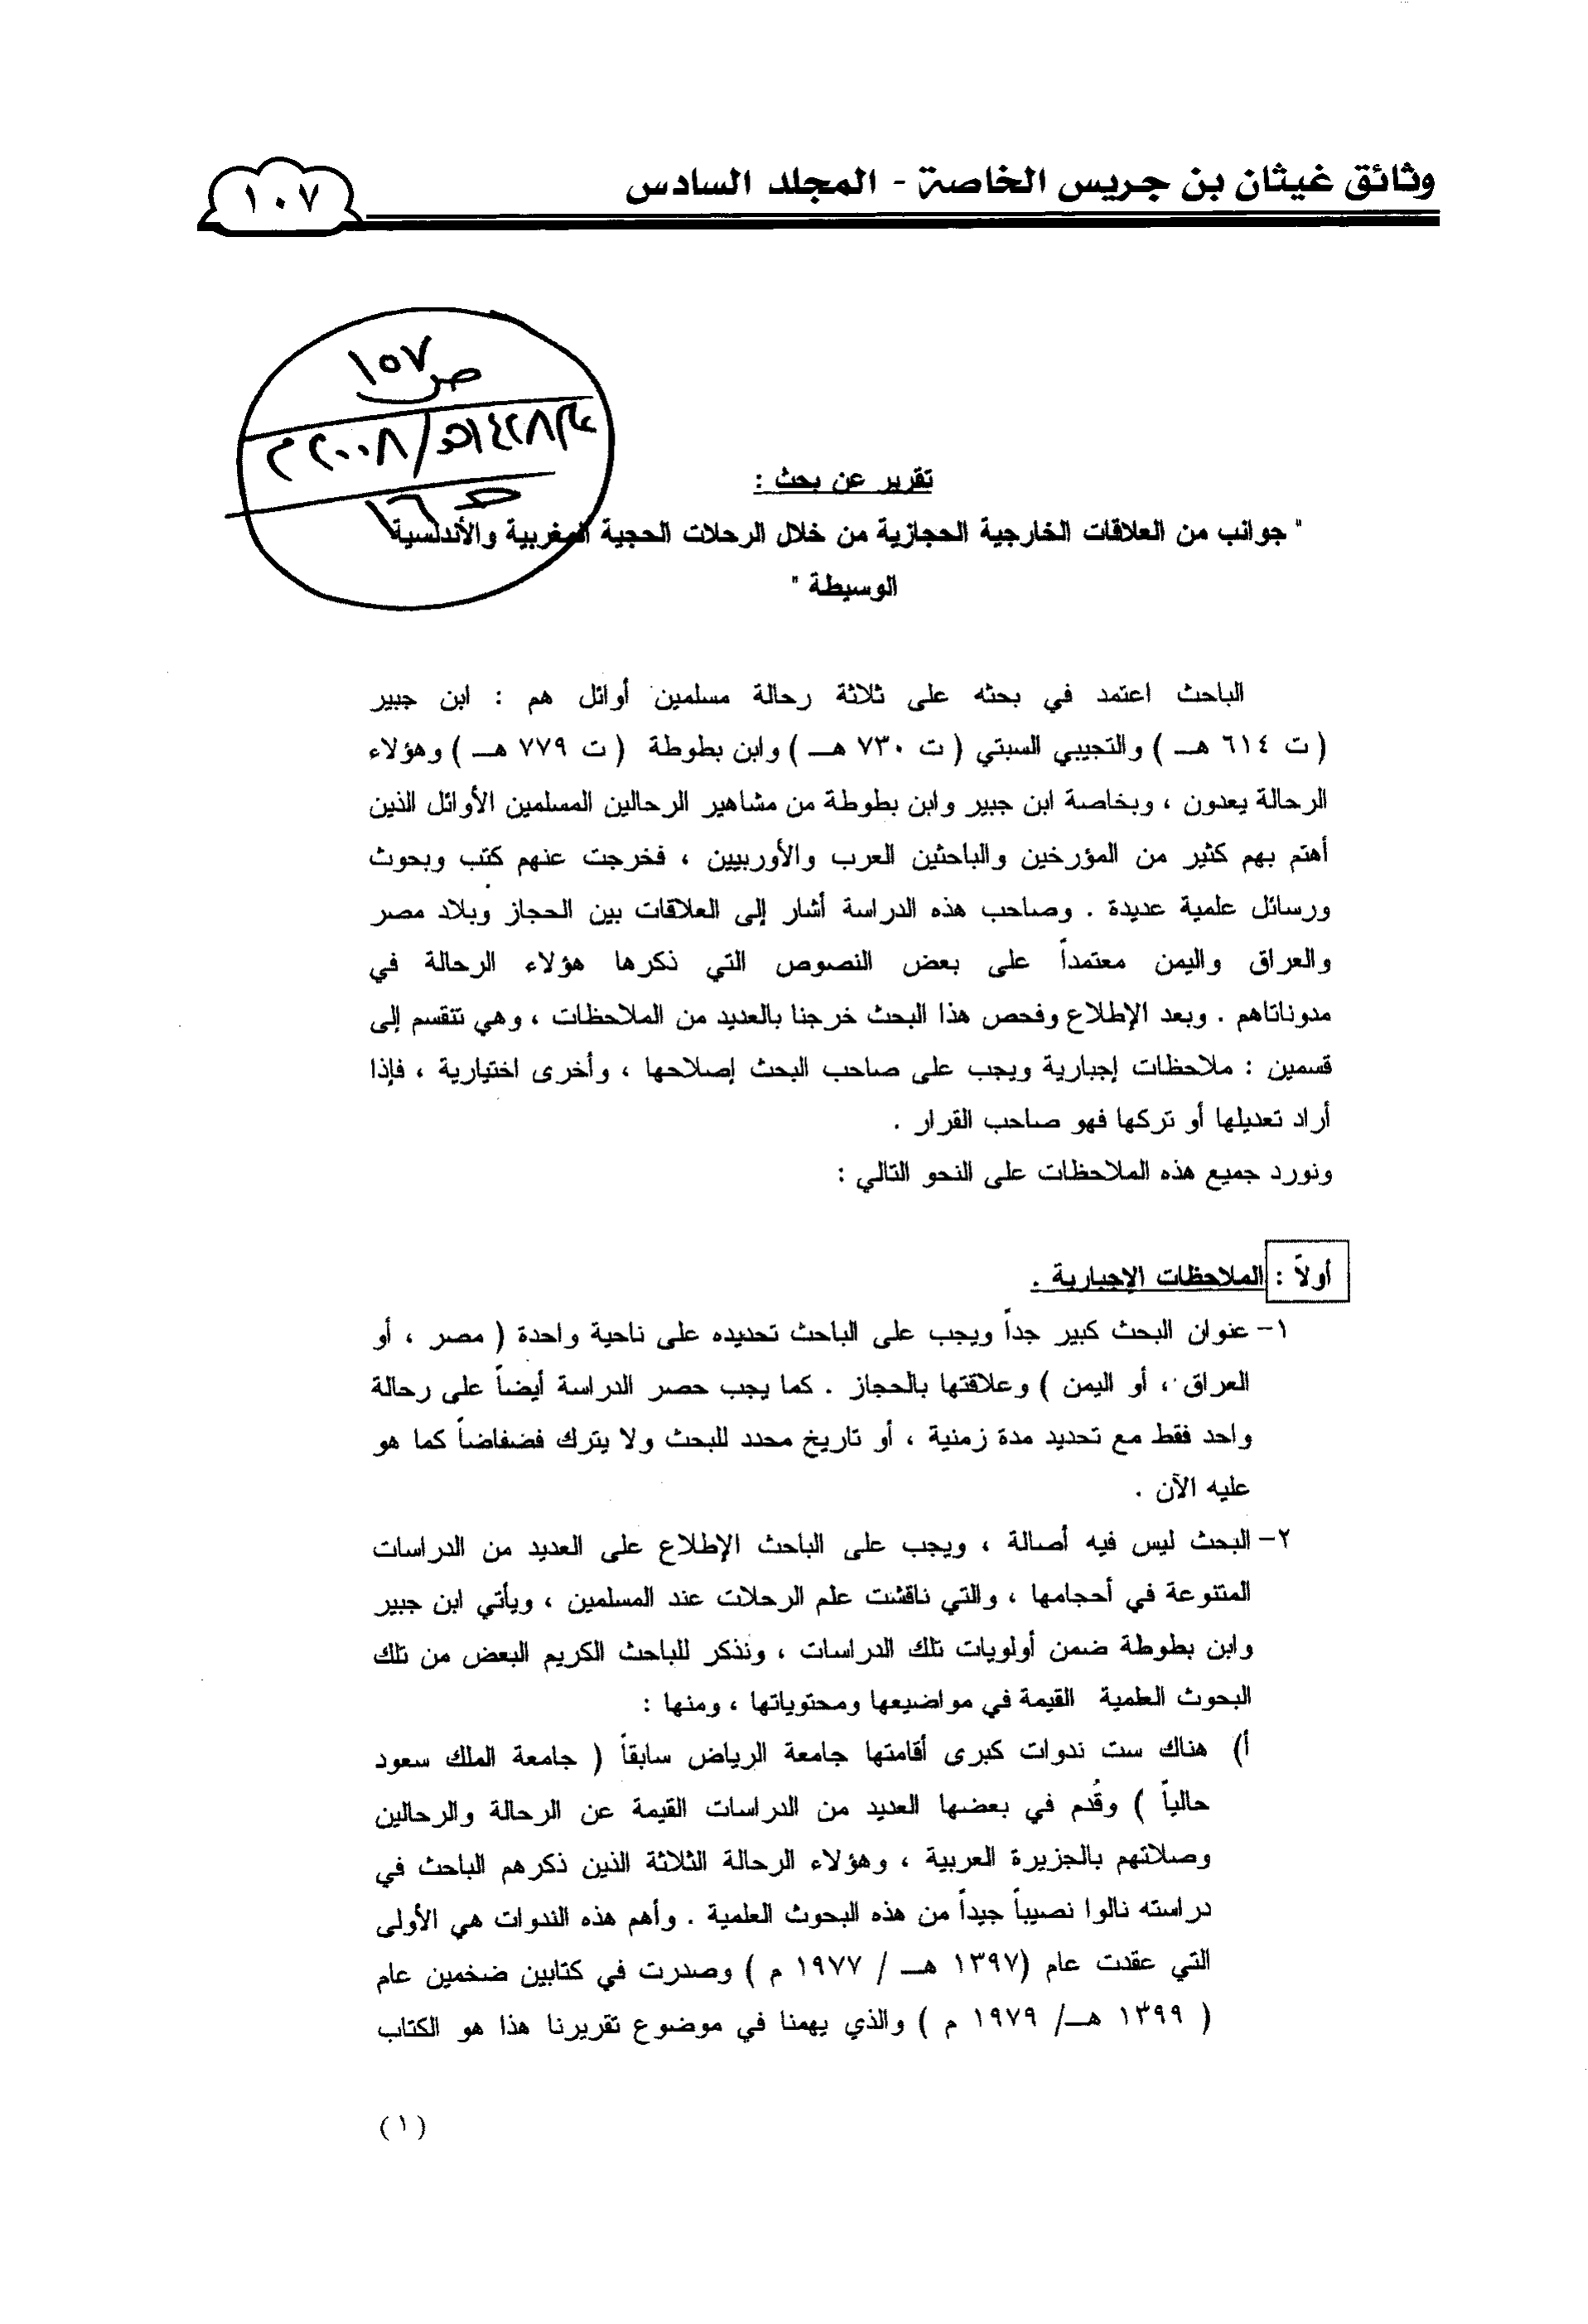 وثائق غيثان بن جريس الخاصة - المجلد السادس
١٠٧
ص ١٥٧
١٤٢٨هـ/٢٠٠٨م
تقرير عن بحث :
" جوانب من العلاقات الخارجية الحجازية من خلال الرحلات الحجية المغربية والأندلسية
الوسيطة "
الباحث اعتمد في بحثه على ثلاثة رحالة مسلمين أوائل هم : ابن جبير
( ت ٦١٤ هـ ) والتجيبي السبتي ( ت ٧٣٠ هـ ) وابن بطوطة ( ت ٧٧٩ هـ ) وهؤلاء
الرحالة يعدون ، وبخاصة ابن جبير وابن بطوطة من مشاهير الرحالين المسلمين الأوائل الذين
أهتم بهم كثير من المؤرخين والباحثين العرب والأوربيين ، فخرجت عنهم كتب وبحوث
ورسائل علمية عديدة . وصاحب هذه الدراسة أشار إلى العلاقات بين الحجاز وبلاد مصر
والعراق واليمن معتمداً على بعض النصوص التي ذكرها هؤلاء الرحالة في
مدوناتاهم . وبعد الإطلاع وفحص هذا البحث خرجنا بالعديد من الملاحظات ، وهي تتقسم إلى
قسمين : ملاحظات إجبارية ويجب على صاحب البحث إصلاحها ، وأخرى اختيارية ، فإذا
أراد تعديلها أو تركها فهو صاحب القرار .
ونورد جميع هذه الملاحظات على النحو التالي :
أولاً : الملاحظات الإجبارية .
١- عنوان البحث كبير جداً ويجب على الباحث تحديده على ناحية واحدة ( مصر ، أو
العراق ، أو اليمن ) وعلاقتها بالحجاز . كما يجب حصر الدراسة أيضاً على رحالة
واحد فقط مع تحديد مدة زمنية ، أو تاريخ محدد للبحث ولا يترك فضفاضاً كما هو
عليه الآن .
٢- البحث ليس فيه أصالة ، ويجب على الباحث الإطلاع على العديد من الدراسات
المتنوعة في أحجامها ، والتي ناقشت علم الرحلات عند المسلمين ، ويأتي ابن جبير
وابن بطوطة ضمن أولويات تلك الدراسات ، ونذكر للباحث الكريم البعض من تلك
البحوث العلمية القيمة في مواضيعها ومحتوياتها ، ومنها :
أ) هناك ست ندوات كبرى أقامتها جامعة الرياض سابقاً ( جامعة الملك سعود
حالياً ) وقُدم في بعضها العديد من الدراسات القيمة عن الرحالة والرحالين
وصلاتهم بالجزيرة العربية ، وهؤلاء الرحالة الثلاثة الذين ذكرهم الباحث في
دراسته نالوا نصيباً جيداً من هذه البحوث العلمية . وأهم هذه الندوات هي الأولى
التي عقدت عام (١٣٩٧ هـ / ١٩٧٧ م ) وصدرت في كتابين ضخمين عام
( ١٣٩٩ هـ/ ١٩٧٩ م ) والذي يهمنا في موضوع تقريرنا هذا هو الكتاب
(١)